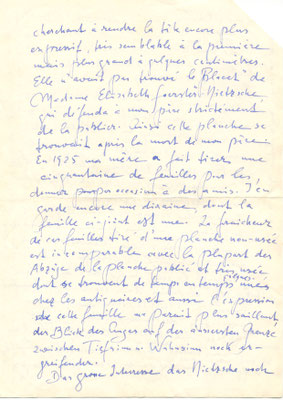 cherchant à rendre la tête encore plus
expressif, très semblable à la première
mais plus grand à quelques centimètres.
Elle n'avait pas trouvé le "Placet" de
Madame Elisabeth Foerster-Nietzsche
qui défendu à mon père strictement
de la publier. Ainsi cette planche se
trouvait après la mort de mon père.
En 1925 ma mère a fait tirer une
cinquantaine de feuilles pour les
donner occasion à des amis. J'en
garde encore une dizaine, dont la
feuille ci-joint est une. La fraîcheur
de ces feuilles tiré d'une planche non-usée
est incomparable avec la plupart des
Abzüge de la planche publié et très usée
dont se trouvent de temps en temps
chez les antiquaires et aussi l'expression
de cette feuille me parait plus saillant,
der Blick des Auges auf der äussersten Grenze
zwischen Tiefsinn u. Wahnsinn noch er-
greifender.
Das grosse Interesse das Nietzsche noch